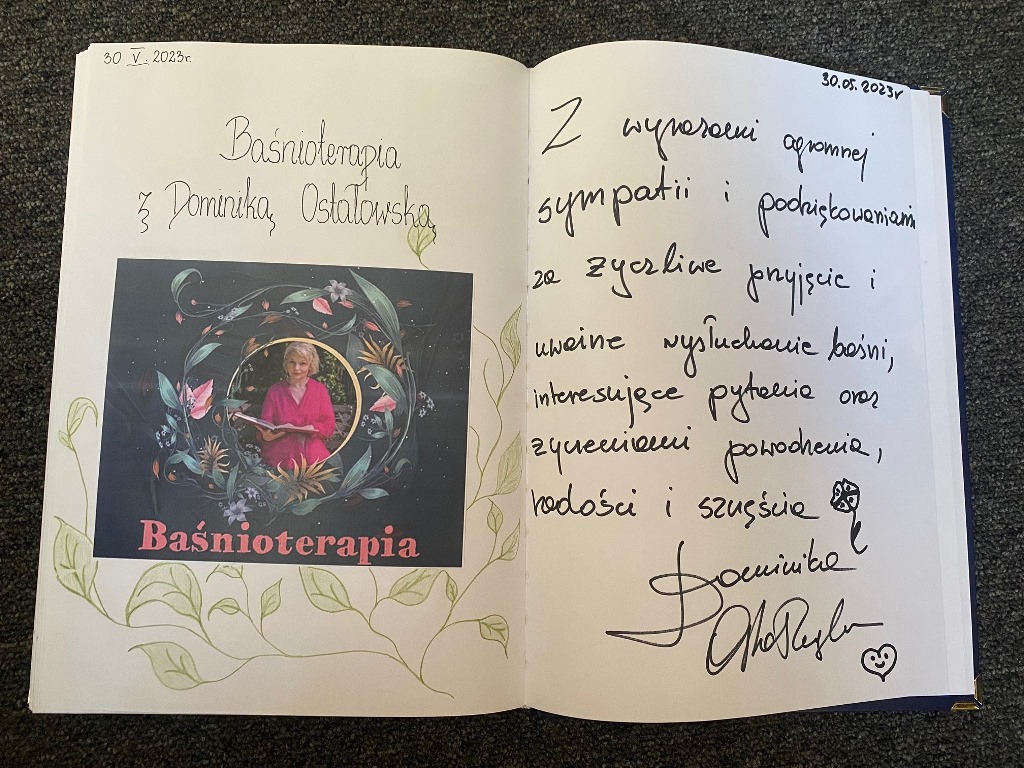 30 V. 2023r.
Baśnioterapia
z Dominiką Ostałowską
Baśnioterapia
30.05.2023r
Z wyrazami ogromnej
sympatii i podziękowaniami
za życzliwe przyjęcie i
uważne wysłuchanie baśni,
interesujące pytania oraz
życzeniami powodzenia,
radości i szczęścia
Dominika